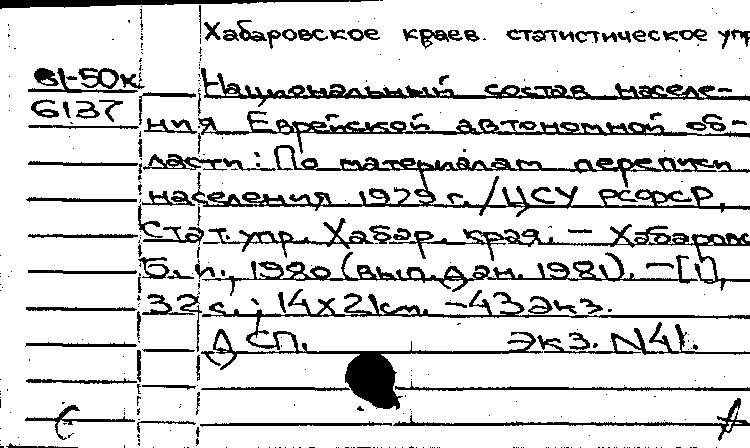 Хабаровское краев. статистическое упр
81-50к
6137
Национальный состав населе-
ния Еврейской автономной об-
ласти: По материалам переписи
населения 1979 г. / ЦСУ РСФСР,
Стат. упр. Хабар. края. – Хабаровс
Б. и., 1980 (вып. дан. 1981). – [1],
32 с.; 14х21см. – 43 экз.
ДСП. Экз. N41.